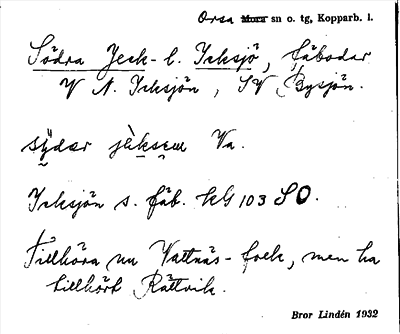 Orsa Mora sn o. tg, Kopparb. l.
Södra Jeck- l. Icksjö, fäbodar
V N. Icksjön, SV Bysjön.
Va.
Icksjön s. fäb. kG 103 SO.
Tillhöra nu Vattnäs-folk, men ha
tillhört Rättvik.
Bror Lindén 1932